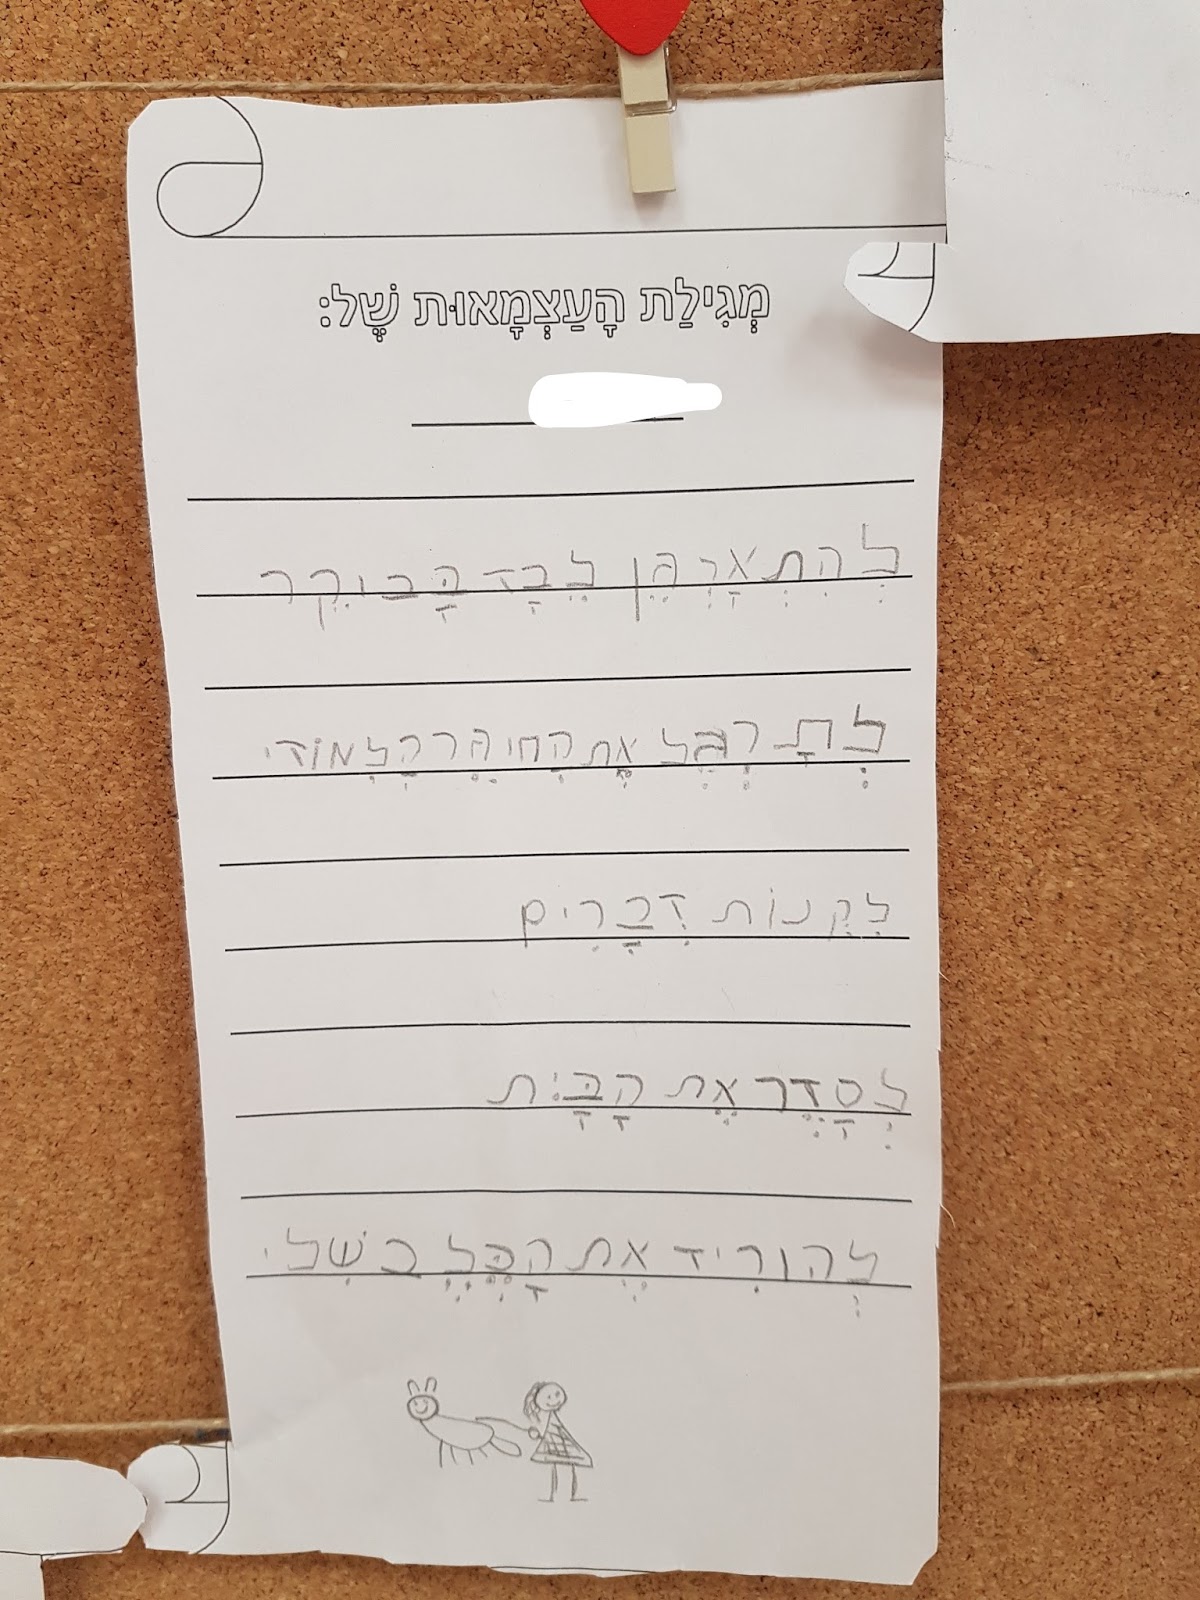 מְגִילַת הָעַצְמָאוּת שֶׁל:
לְהִתְאָרְגֵן לְבָד הָבּוֹקֵר
לְתָרְגֵל אֶת הַחִיבֵּר הַלְמוֹדִי
לִקְנוֹת דְבָרִים
לְסַדֵּר אֶת הָבָּיִת
לְהוֹרִיד אֶת הָכֶּלֶב בִּשְׁלִי